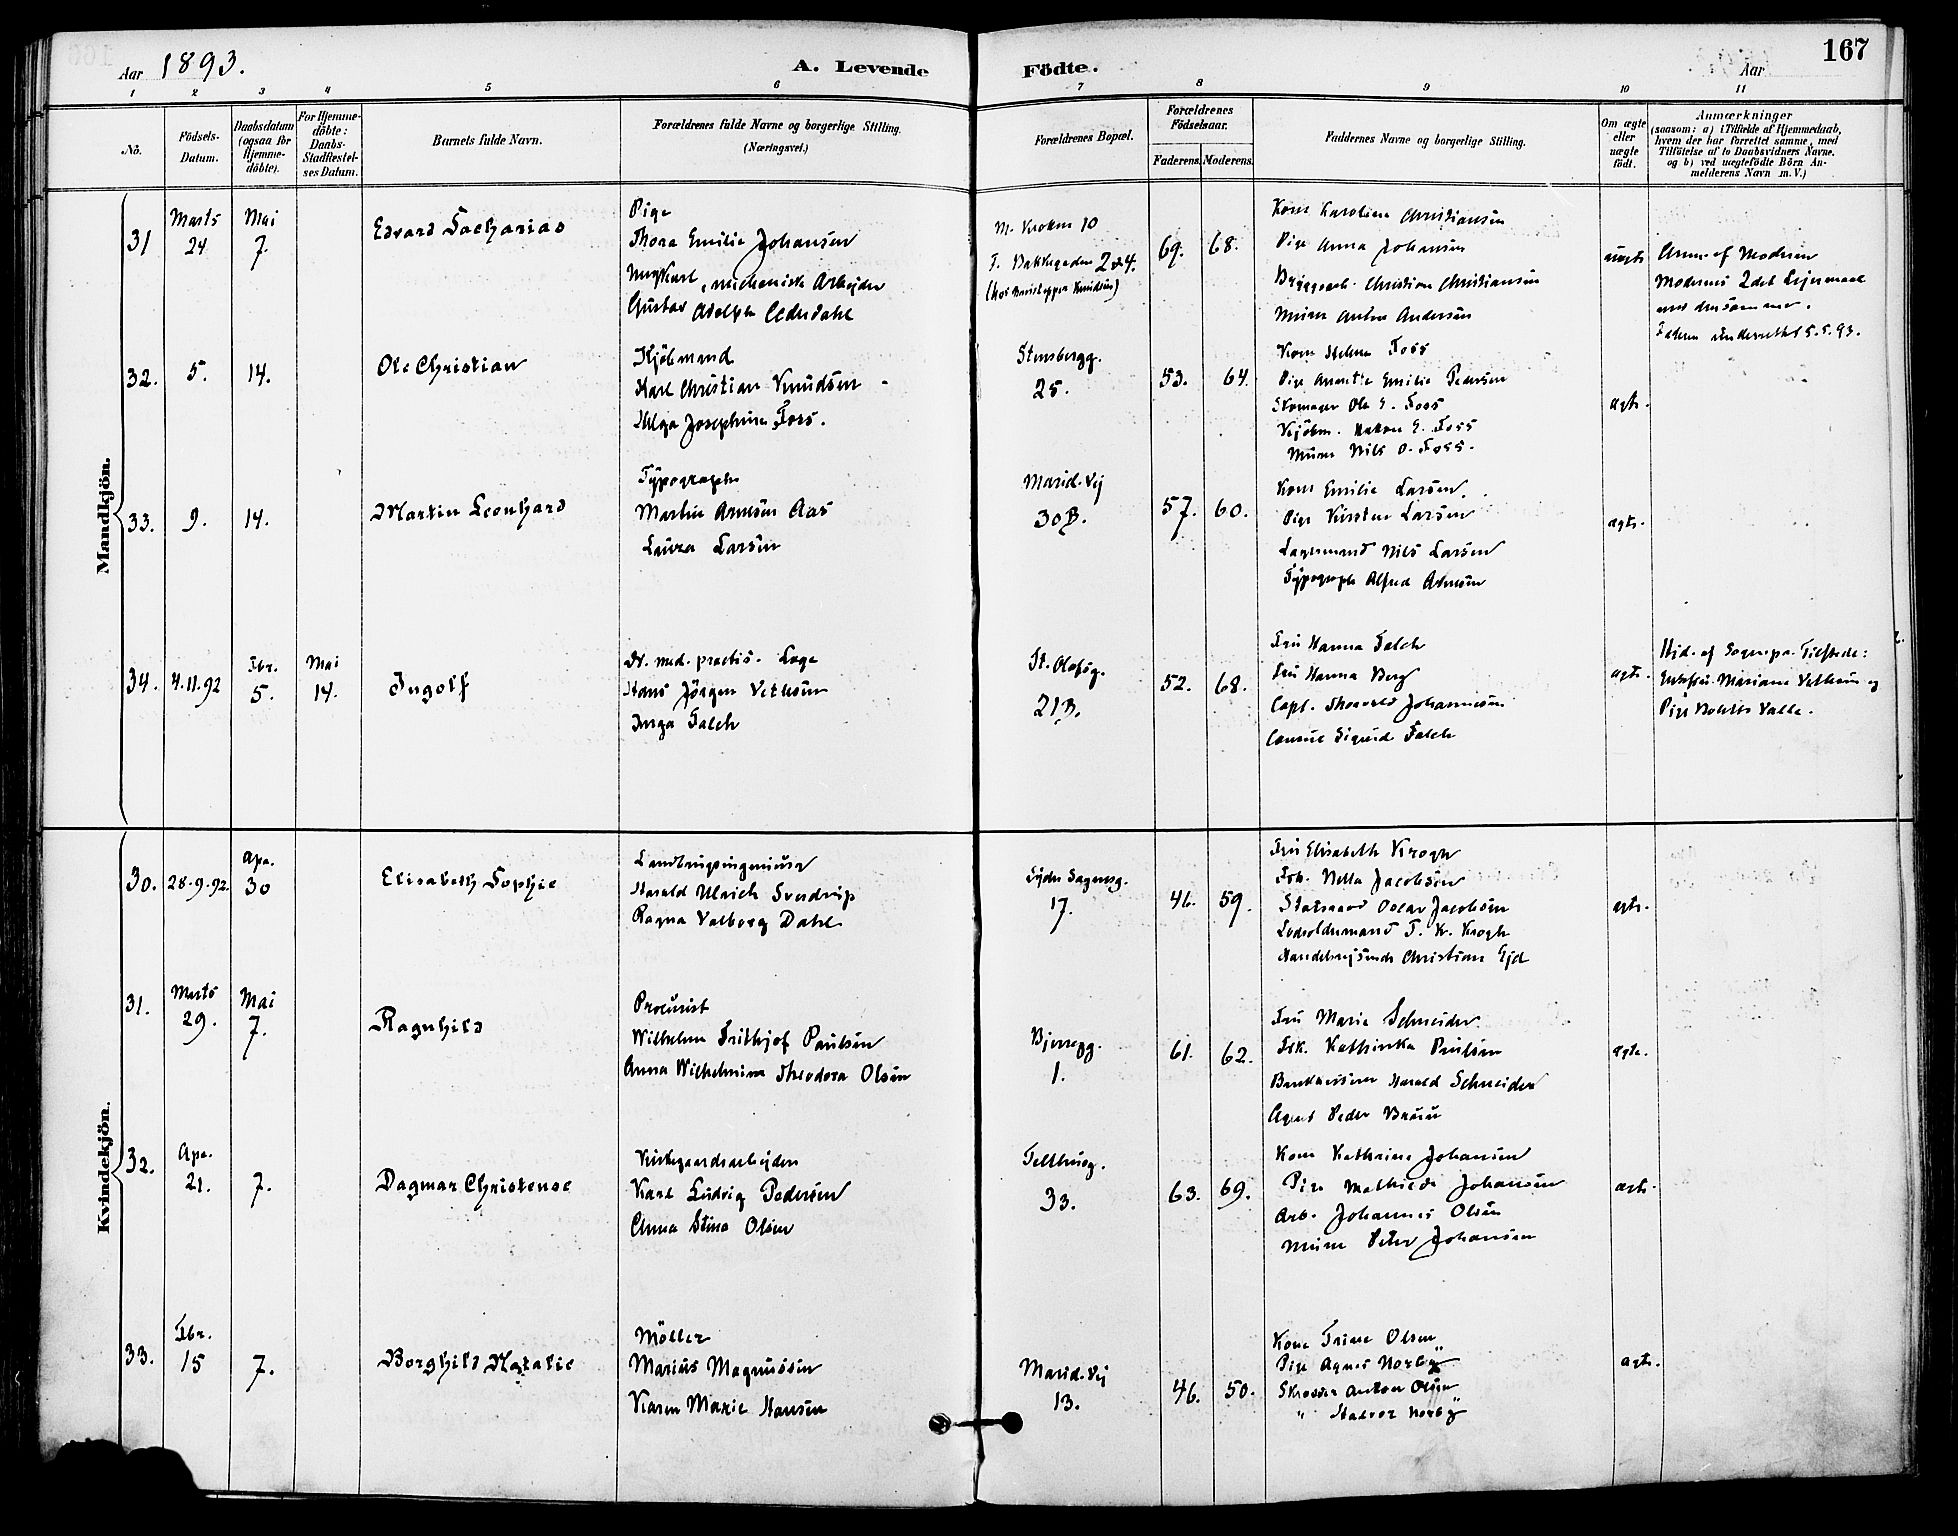 Aar 1893.
A. Levende Födte.
Aar
167
1 2 3 4 5 6 7 8 9 10 11
No.
Födsels-Datum.
Daabsdatum (ogsaa for Hjemme-döbte).
For Hjemme-döbte: Daabs-Stadfæstel-ses Datum.
Barnets fulde Navn.
Forældrenes fulde Navne og borgerlige Stilling. (Næringsvei.)
Forældrenes Bopæl.
Forældrenes Födselsaar.
Faderens. Moderens.
Faddernes Navne og borgerlige Stilling.
Om ægte eller uægte födt.
Anmærkninger
(saasom: a) i Tilfælde af Hjemmedaab, hvem der har forrettet samme, med Tilföielse af to Daabsvidners Navne. og b) ved uægtefödte Börn An-melderens Navn m. V.)
Mandkjön.
31 Marts 24 Mai 7.
Edvard Zacharias
Pige
Thora Emilie Johansen
Ungkarl, mechanisk Arbejder
Gustav Adolph Cederdahl
M. Kroken 10
F. Bakkegaden
69. 68.
Kone Karoline Christiansen
Pige Anna Johansen
Byggearb. Christian Christiansen
Murer Anton Andersen
uægte
Anm. af Moderen
Moderens 2det Lejermaal
med densamme.
Faderen underrettet 5.5.93.
32. 5. 14.
Ole Christian
Kjöbmand
Karl Christian Knudsen
Helga Josephine Foss.
Stensbergg.
25.
53. 64.
Kone Helene Foss
Pige Annette Emilie Pedersen
Skomager Ole E. Foss
Kjöbm. Hakon E. Foss
Murer Nils O. Foss.
ægte.
33. 9. 14.
Martin Leonhard
Typograph
Martin Arnesen Aas
Laura Larsen
Marid. Vej
30B.
57. 60.
Kone Emilie Larsen.
Pige Kirstine Larsen
Lagermand Nils Larsen
Typograph Alfred Arnesen
ægte.
34. 4.11.92 Fbr. 5. Mai 14.
Ingolf
Dr. med. practis. Læge
Hans Jörgen Vetlesen
Inga Falch
St. Olafsg.
21B.
52. 68.
Fru Hanna Falch
Fru Hanna Berg
Capt. Thorvald Johannesen
Consul Sigurd Falch
ægte.
Hjd. af Sognepr.
Mariane Vetlesen og
Pige
Kvindekjön.
30. 28.9.92. Apr. 30
Elisabeth Sophie
Landbrugsingeniör
Harald Ulrich Sverdrup
Ragna Valborg Dahl
Sagensg.
17.
46. 59.
Fru Elisabeth Krogh
Frk. Netta Jacobsen
Statsraad Oscar Jacobsen
Krogh
Christian
ægte.
31. Marts 29. Mai 7.
Ragnhild
Procurist
Wilhelm Frithjof Paulsen
Anna Wilhelmine Theodora Olsen
Bjerregg.
1.
61. 62.
Fru Marie Schneider
Frk. Kathinka Paulsen
Bankkasserer Harald Schneider
Agent Peder Bruun
ægte.
32. Apr. 21. 7.
Dagmar Christense
Kirkegaardsarbejder
Karl Ludvig Pedersen
Anna Stina Olsen
Telthusg.
33.
63. 69.
Kone Kathrine Johansen
Pige Mathilde Johansen
Arb. Johannes Olsen
Murer Peter Johansen
ægte.
33. Fbr. 15 7.
Borghild Natalie
Möller
Marius Magnussen
Karen Marie Hansen
Marid. Vej
13.
46. 50.
Kone Trine Olsen
Pige Agnes Norby
Skrædder Anton Olsen
" Halvor Norby
ægte.